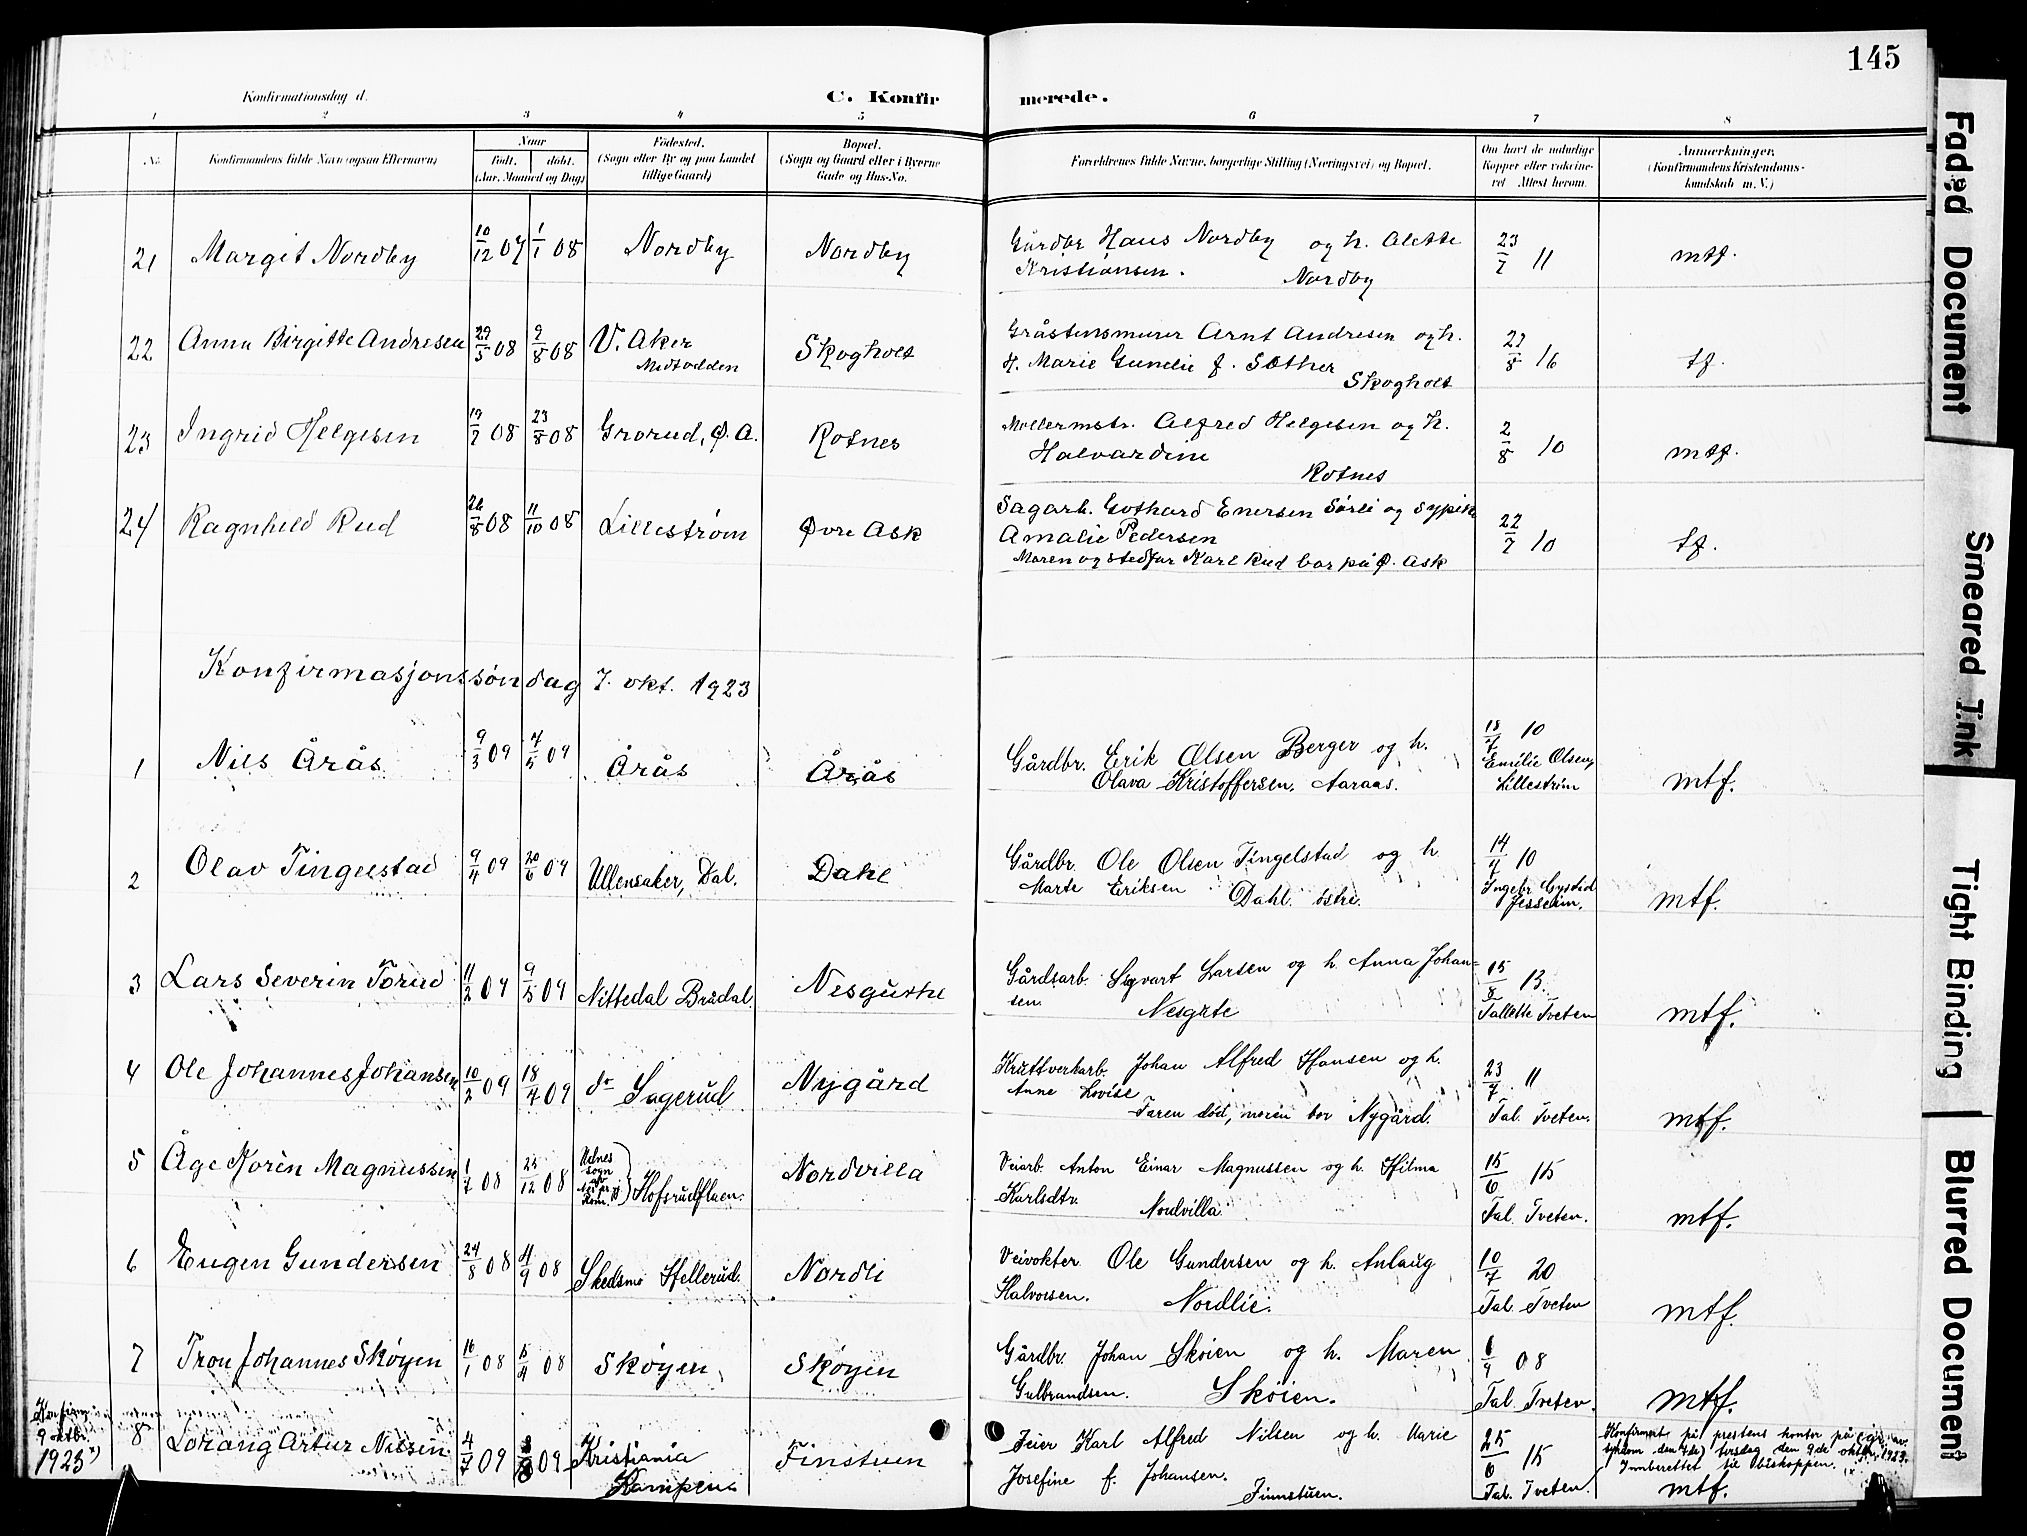 145
Konfirmationsdag d.
C. Konfirmerede.
1 2 3 4 5 6 7 8
No. Konfirmandens fulde Navn (ogsaa Efternavn) Naar født. døbt. (Aar, Maaned og Dag) Fødested. (Sogn eller By og paa Landet tillige Gaard) Bopæl. (Sogn og Gaard eller i Byerne Gade og Hus-No. Forældrenes fulde Navne, borgerlige Stilling (Næringsvei) og Bopæl. Om havt de naturlige Kopper eller vaccineret Attest herom. Anmærkninger. (Konfirmandens Kristendomskundskab m. V.)
21 Margit Nordby 10/12 07 1/1 08 Nordby Nordby Gårdbr Hans Nordby og h. Alette 23/7 11 mtf.
Kristiansen. Nordby
22 Anna Birgitte Andresen 29/5 08 9/8 08 V. Aker Skogholt Gråstensmurer Arnt Andresen og h. 16 tf.
Midtodden H. Marie Gunelie f. Sæther
Skogholt
23 Ingrid Helgesen 19/7 08 23/8 08 Grorud, Ø. A. Rotnes Møllermstr. Alfred Helgesen og h. 2/8 10 mtf.
Halvardine
Rotnes
24 Ragnhild Rud 26/8 08 11/10 08 Lillestrøm Øvre Ask Sagarb. Gothard Enersen Sørli og sypike 22/7 10 tf.
Amalie Pedersen
Moren og stedfar Karl Rud bor på Ø. Ask
Konfirmasjonssøndag 7. okt. 1923
1 Nils Årås 9/3 09 4/5 09 Årås Årås Gårdbr. Erik Olsen Berger og h. 18/7 10 mtf.
Olava Kristoffersen. Aaraas. Emilie Olsen, Lillestrøm
2 Olav Tingelstad 9/4 09 20/6 09 Ullensaker, Dal. Dahl Gårdbr. Ole Olsen Tingelstad og h 14/4 10 mtf.
Marte Eriksen Dahl østre. Jessheim.
3 Lars Severin Torud 11/2 09 9/5 09 Nittedal Brådal Nesgutne Gårdsarb. Sigvart Larsen og h. Anna Johan= 15/8 13 mtf.
sen. Nesgrte Tallette Tveten
4 Ole Johannes Johansen 10/2 09 18/4 09 do Sagerud Nygård Kruttverkarb. Johan Alfred Hansen og h. 23/7 11 mtf.
Anne Lovise Tal. Tveten.
Faren død, moren bor Nygård.
5 Åge Korèn Magnussen 1/7 08 25/12 08 Udnes sogn Hofsrudflaen. Nordvilla Veiarb. Anton Einar Magnussen og h. Hilma 15/6 15 mtf.
Karlsdtr. Nordvilla Tal. Tveten.
6 Eugen Gundersen 24/8 08 4/9 08 Skedsmo Hellerud. Nordli Veivokter Ole Gundersen og h. Anlaug 10/7 20 mtf.
Halvorsen. Nordlie. Tal. Tveten
7 Tron Johannes Skøyen 16/1 08 15/4 08 Skøyen Skøyen Gårdbr. Johan Skøien og h. Maren 1/9 08 mtf.
Gulbrandsen. Skøien. Tal. Tveten.
Konfirm. 9 oktbr. 1923 x)
8 Lorang Artur Nilsen 4/7 09 09 Kristiania Finstuen Feier Karl Alfred Nilsen og h. Marie 25/6 15 Konfirmert på prestens kontor på (gr. av
Kampens Josefine f. Johansen. Finnstuen. Tal. Tveten. sykdom den 7de) tirsdag den 9de oktbr. 1923.
Innberettet til Biskoppen. (x
mtf.
Faded Document
Smeared Ink
Tight Binding
Blurred Document